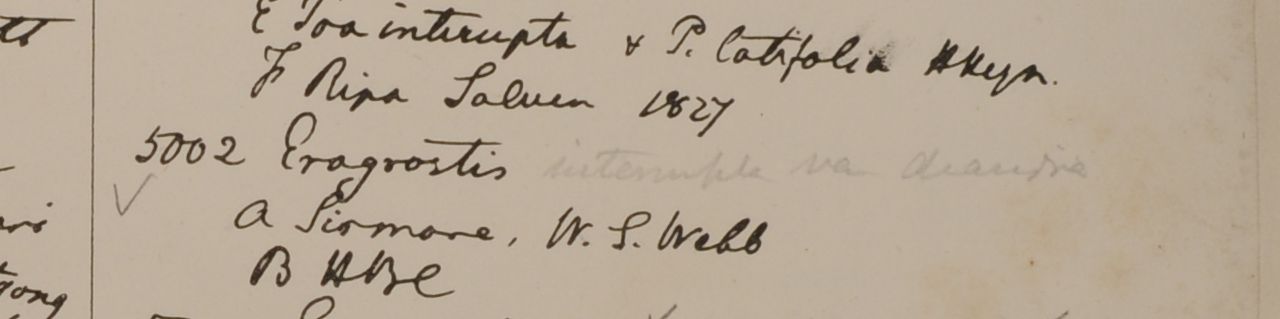 E Poa interrupta & P. latifolia HHeyn.
F Ripa Saluen 1827
5002 Eragrostis interrupta va diandra
a Sirmore, W. S. Webb
B HBC